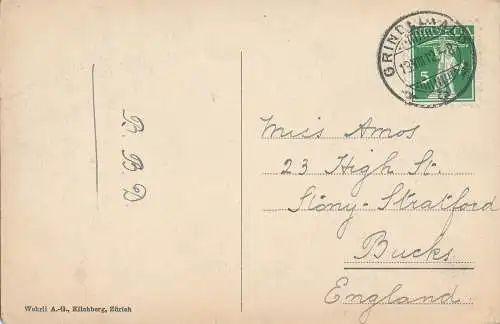 GRINDELWALD
13.VIII.12.-8
HELVETIA
5
R. B. D.
Miss Amos
23 High St.
Stony-Stratford
Bucks.
England.
Wehrli A.-G., Kilchberg, Zürich